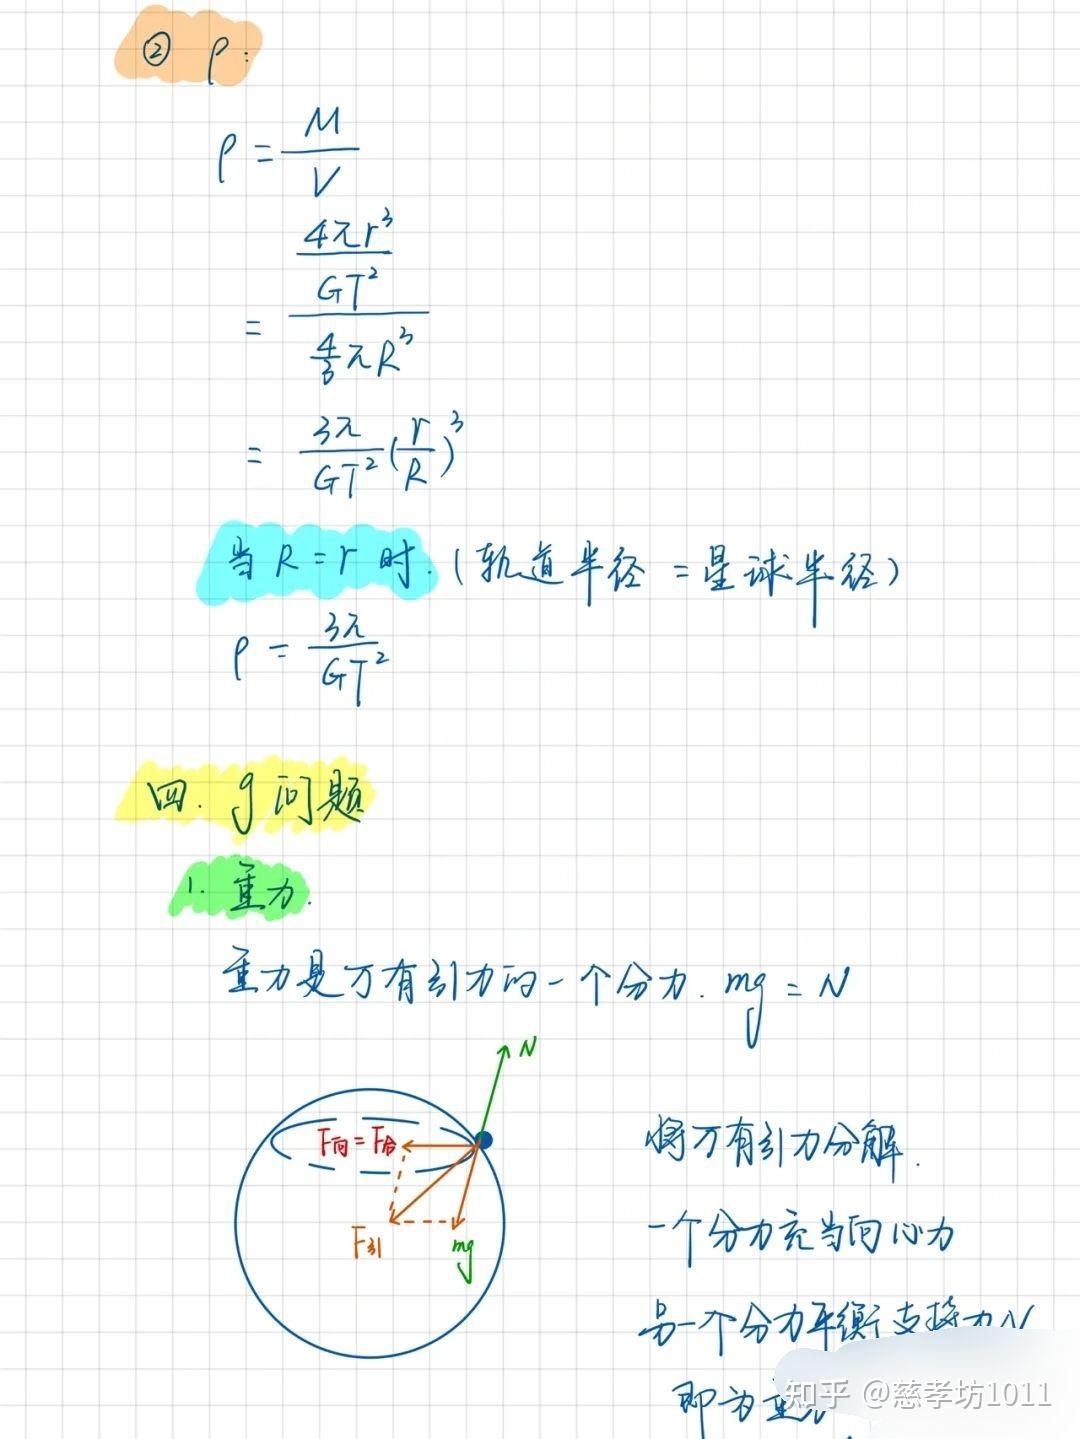 ② ρ:
ρ = M/V
= (4πr³/GT²)/(4/3 πR³)
= 3π/GT² (r/R)³
当R=r时.(轨道半径=星球半径)
ρ = 3π/GT²
四. g问题
1. 重力.
重力是万有引力的一个分力. mg = N
N
F向=F合
F引
mg
将万有引力分解.
一个分力充当向心力
另一个分力平衡支持力N
即为重力
知乎 @慈孝坊1011